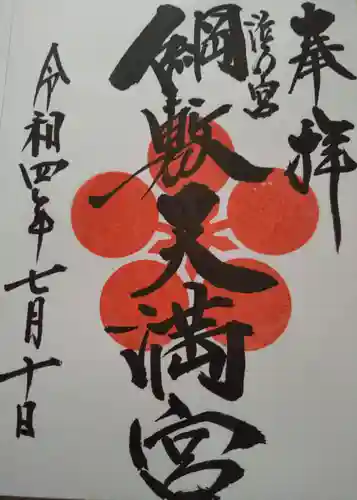 奉拝
浜の宮
綱敷天満宮
令和四年七月十日